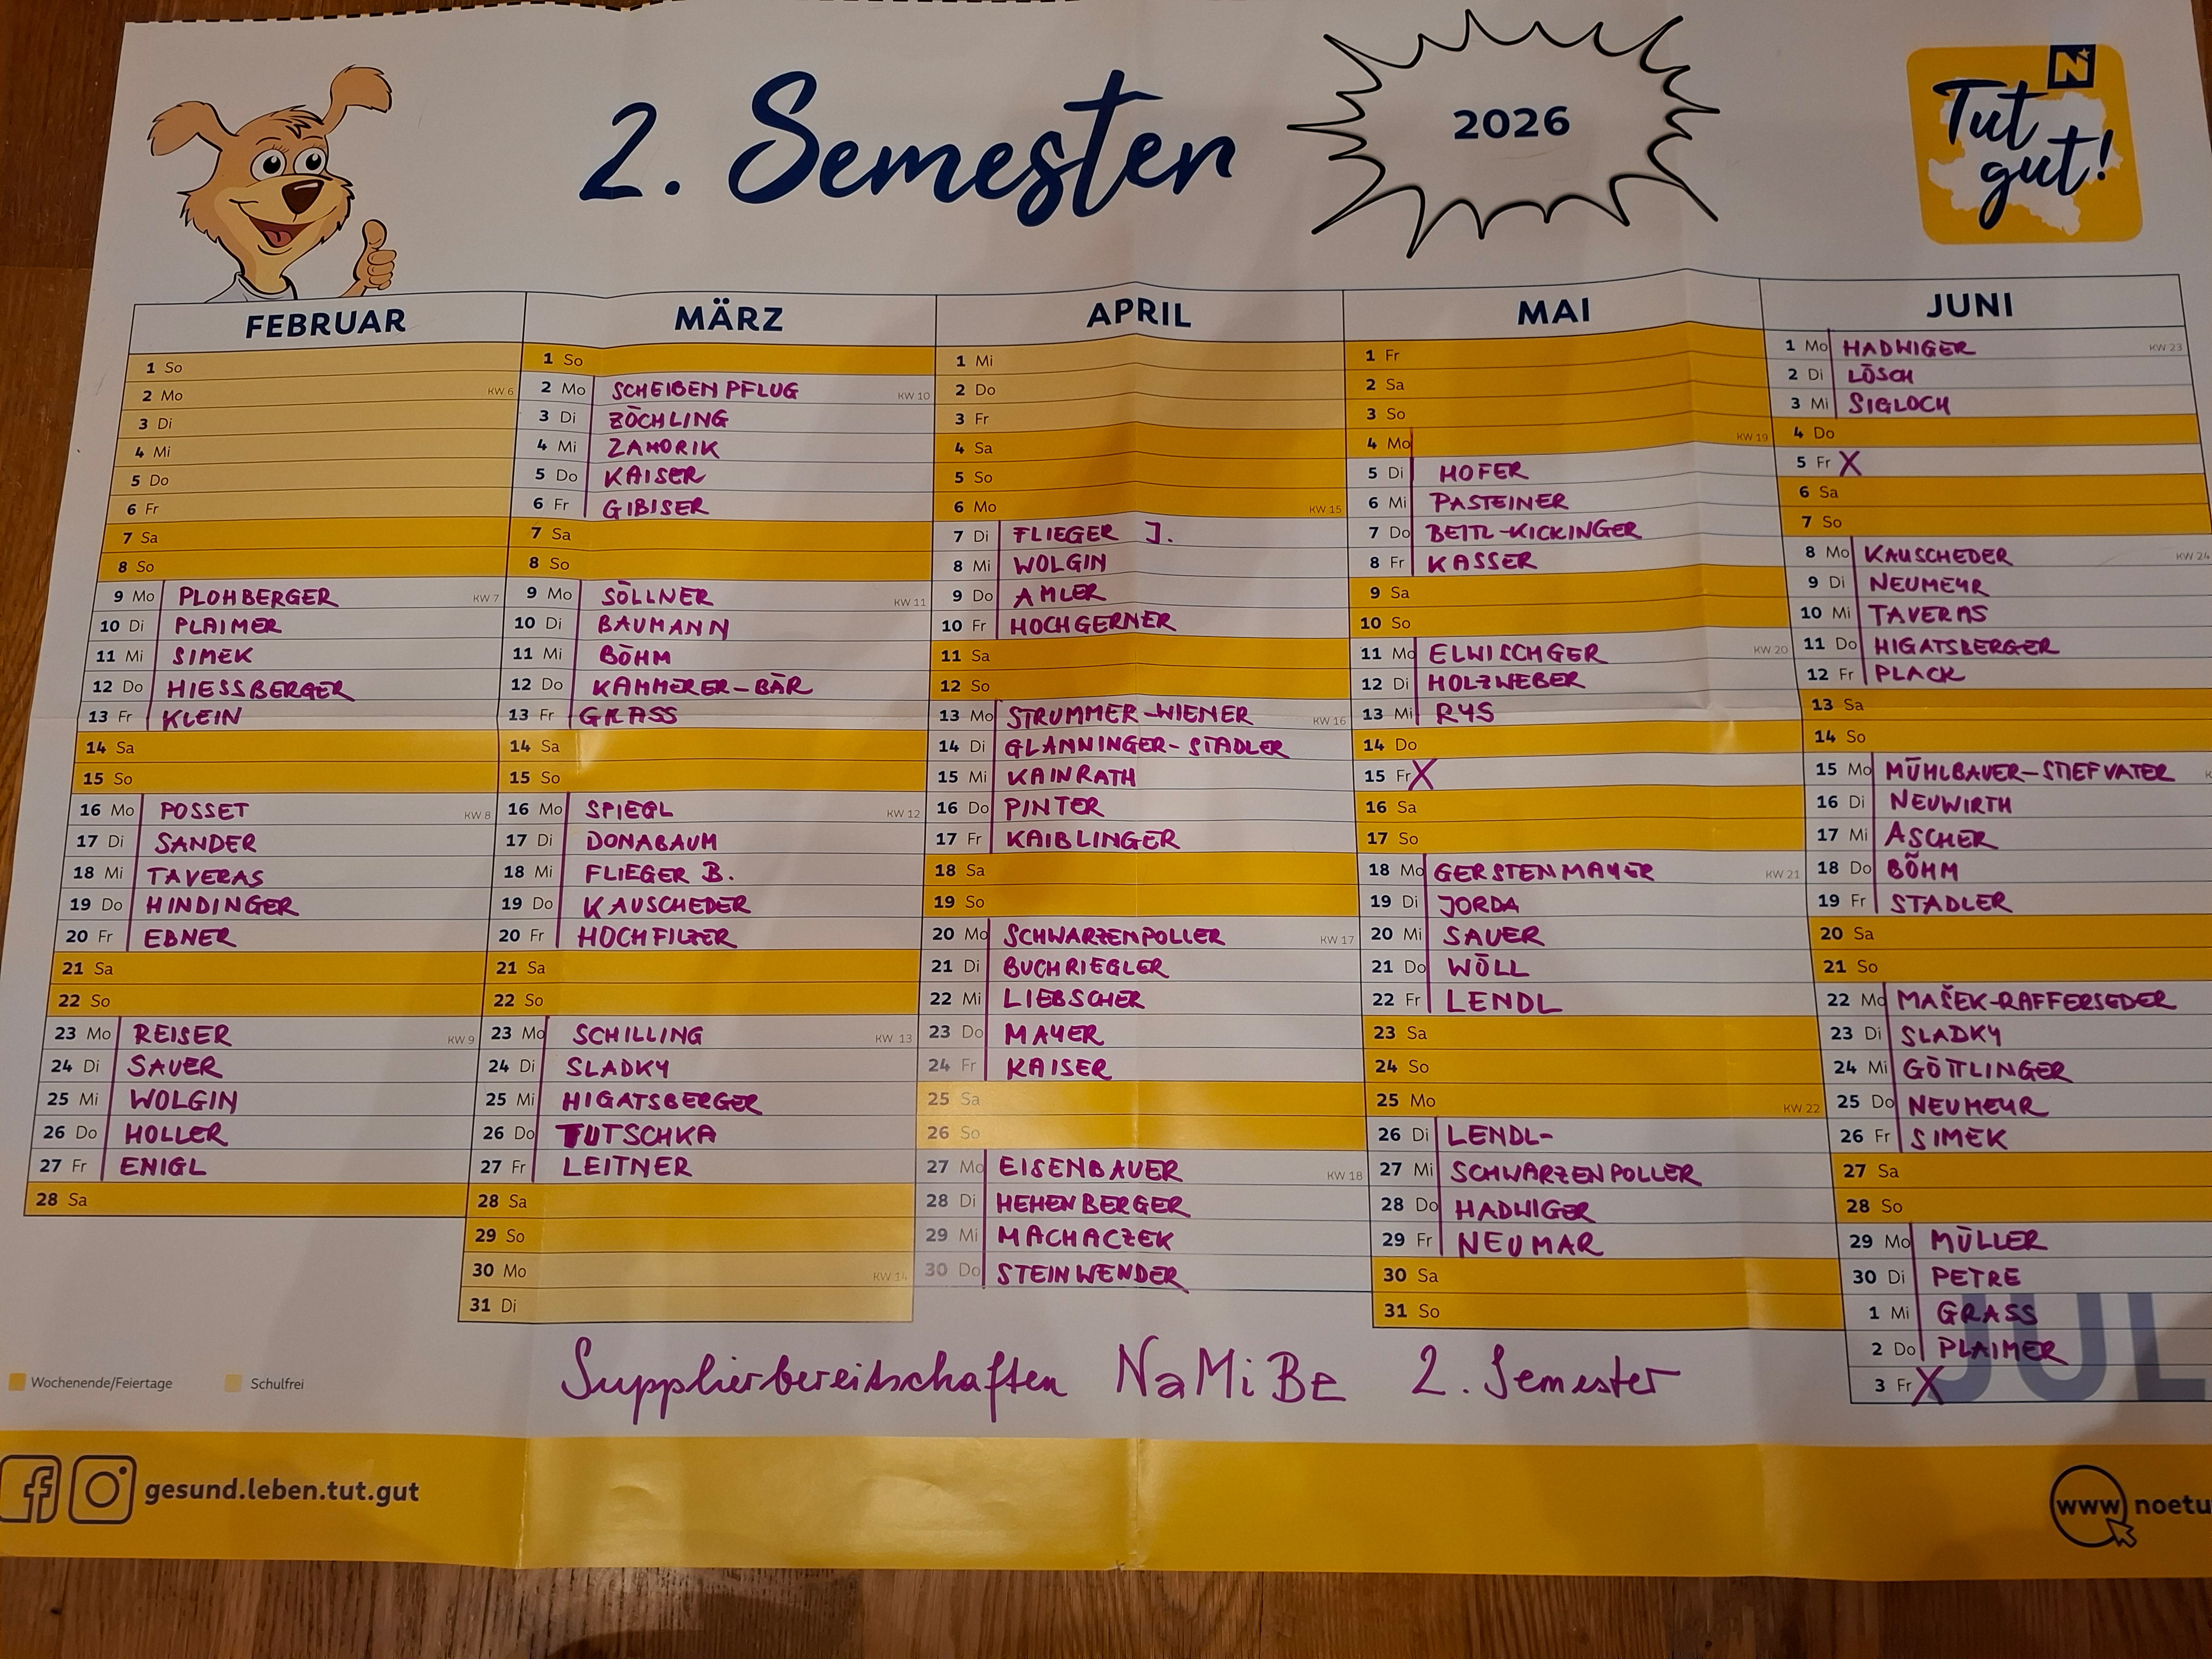 2. Semester
2026
N
Tut
gut!
FEBRUAR
1 So
2 Mo KW 6
3 Di
4 Mi
5 Do
6 Fr
7 Sa
8 So
9 Mo PLOHBERGER KW 7
10 Di PLAIMER
11 Mi SIMEK
12 Do HIESSBERGER
13 Fr KLEIN
14 Sa
15 So
16 Mo POSSET KW 8
17 Di SANDER
18 Mi TAVERAS
19 Do HINDINGER
20 Fr EBNER
21 Sa
22 So
23 Mo REISER KW 9
24 Di SAUER
25 Mi WOLGIN
26 Do HOLLER
27 Fr ENIGL
28 Sa
MÄRZ
1 So
2 Mo SCHEIBENPFLUG KW 10
3 Di ZÖCHLING
4 Mi ZAHORIK
5 Do KAISER
6 Fr GIBISER
7 Sa
8 So
9 Mo SÖLLNER KW 11
10 Di BAUMANN
11 Mi BÖHM
12 Do KAMMERER-BÄR
13 Fr GRASS
14 Sa
15 So
16 Mo SPIEGL KW 12
17 Di DONABAUM
18 Mi FLIEGER B.
19 Do KAUSCHEDER
20 Fr HOCHFILZER
21 Sa
22 So
23 Mo SCHILLING KW 13
24 Di SLADKY
25 Mi HIGATSBERGER
26 Do TUTSCHKA
27 Fr LEITNER
28 Sa
29 So
30 Mo KW 14
31 Di
APRIL
1 Mi
2 Do
3 Fr
4 Sa
5 So
6 Mo KW 15
7 Di FLIEGER J.
8 Mi WOLGIN
9 Do AMLER
10 Fr HOCHGERNER
11 Sa
12 So
13 Mo STRUMMER-WIENER KW 16
14 Di GLANNINGER-STADLER
15 Mi KAINRATH
16 Do PINTER
17 Fr KAIBLINGER
18 Sa
19 So
20 Mo SCHWARZENPOLLER KW 17
21 Di BUCHRIEGLER
22 Mi LIEBSCHER
23 Do MAYER
24 Fr KAISER
25 Sa
26 So
27 Mo EISENBAUER KW 18
28 Di HEHENBERGER
29 Mi MACHACZEK
30 Do STEINWENDER
MAI
1 Fr
2 Sa
3 So
4 Mo KW 19
5 Di HOFER
6 Mi PASTEINER
7 Do BEITL-KICKINGER
8 Fr KASSER
9 Sa
10 So
11 Mo ELWISCHGER KW 20
12 Di HOLZWEBER
13 Mi RYS
14 Do
15 Fr X
16 Sa
17 So
18 Mo GERSTENMAYER KW 21
19 Di JORDA
20 Mi SAUER
21 Do WÖLL
22 Fr LENDL
23 Sa
24 So
25 Mo KW 22
26 Di LENDL-
27 Mi SCHWARZENPOLLER
28 Do HADWIGER
29 Fr NEUMAR
30 Sa
31 So
JUNI
1 Mo HADWIGER KW 23
2 Di LÖSCH
3 Mi SIGLOCH
4 Do
5 Fr X
6 Sa
7 So
8 Mo KAUSCHEDER KW 24
9 Di NEUMEYR
10 Mi TAVERAS
11 Do HIGATSBERGER
12 Fr PLACK
13 Sa
14 So
15 Mo MÜHLBAUER-STIEFVATER
16 Di NEUWIRTH
17 Mi ASCHER
18 Do BÖHM
19 Fr STADLER
20 Sa
21 So
22 Mo MAŠEK-RAFFERSEDER
23 Di SLADKY
24 Mi GÖTTLINGER
25 Do NEUMEYR
26 Fr SIMEK
27 Sa
28 So
29 Mo MÜLLER
30 Di PETRE
JUL
1 Mi GRASS
2 Do PLAIMER
3 Fr X
Supplierbereitschaften NaMiBe 2. Semester
Wochenende/Feiertage Schulfrei
gesund.leben.tut.gut
www noetu